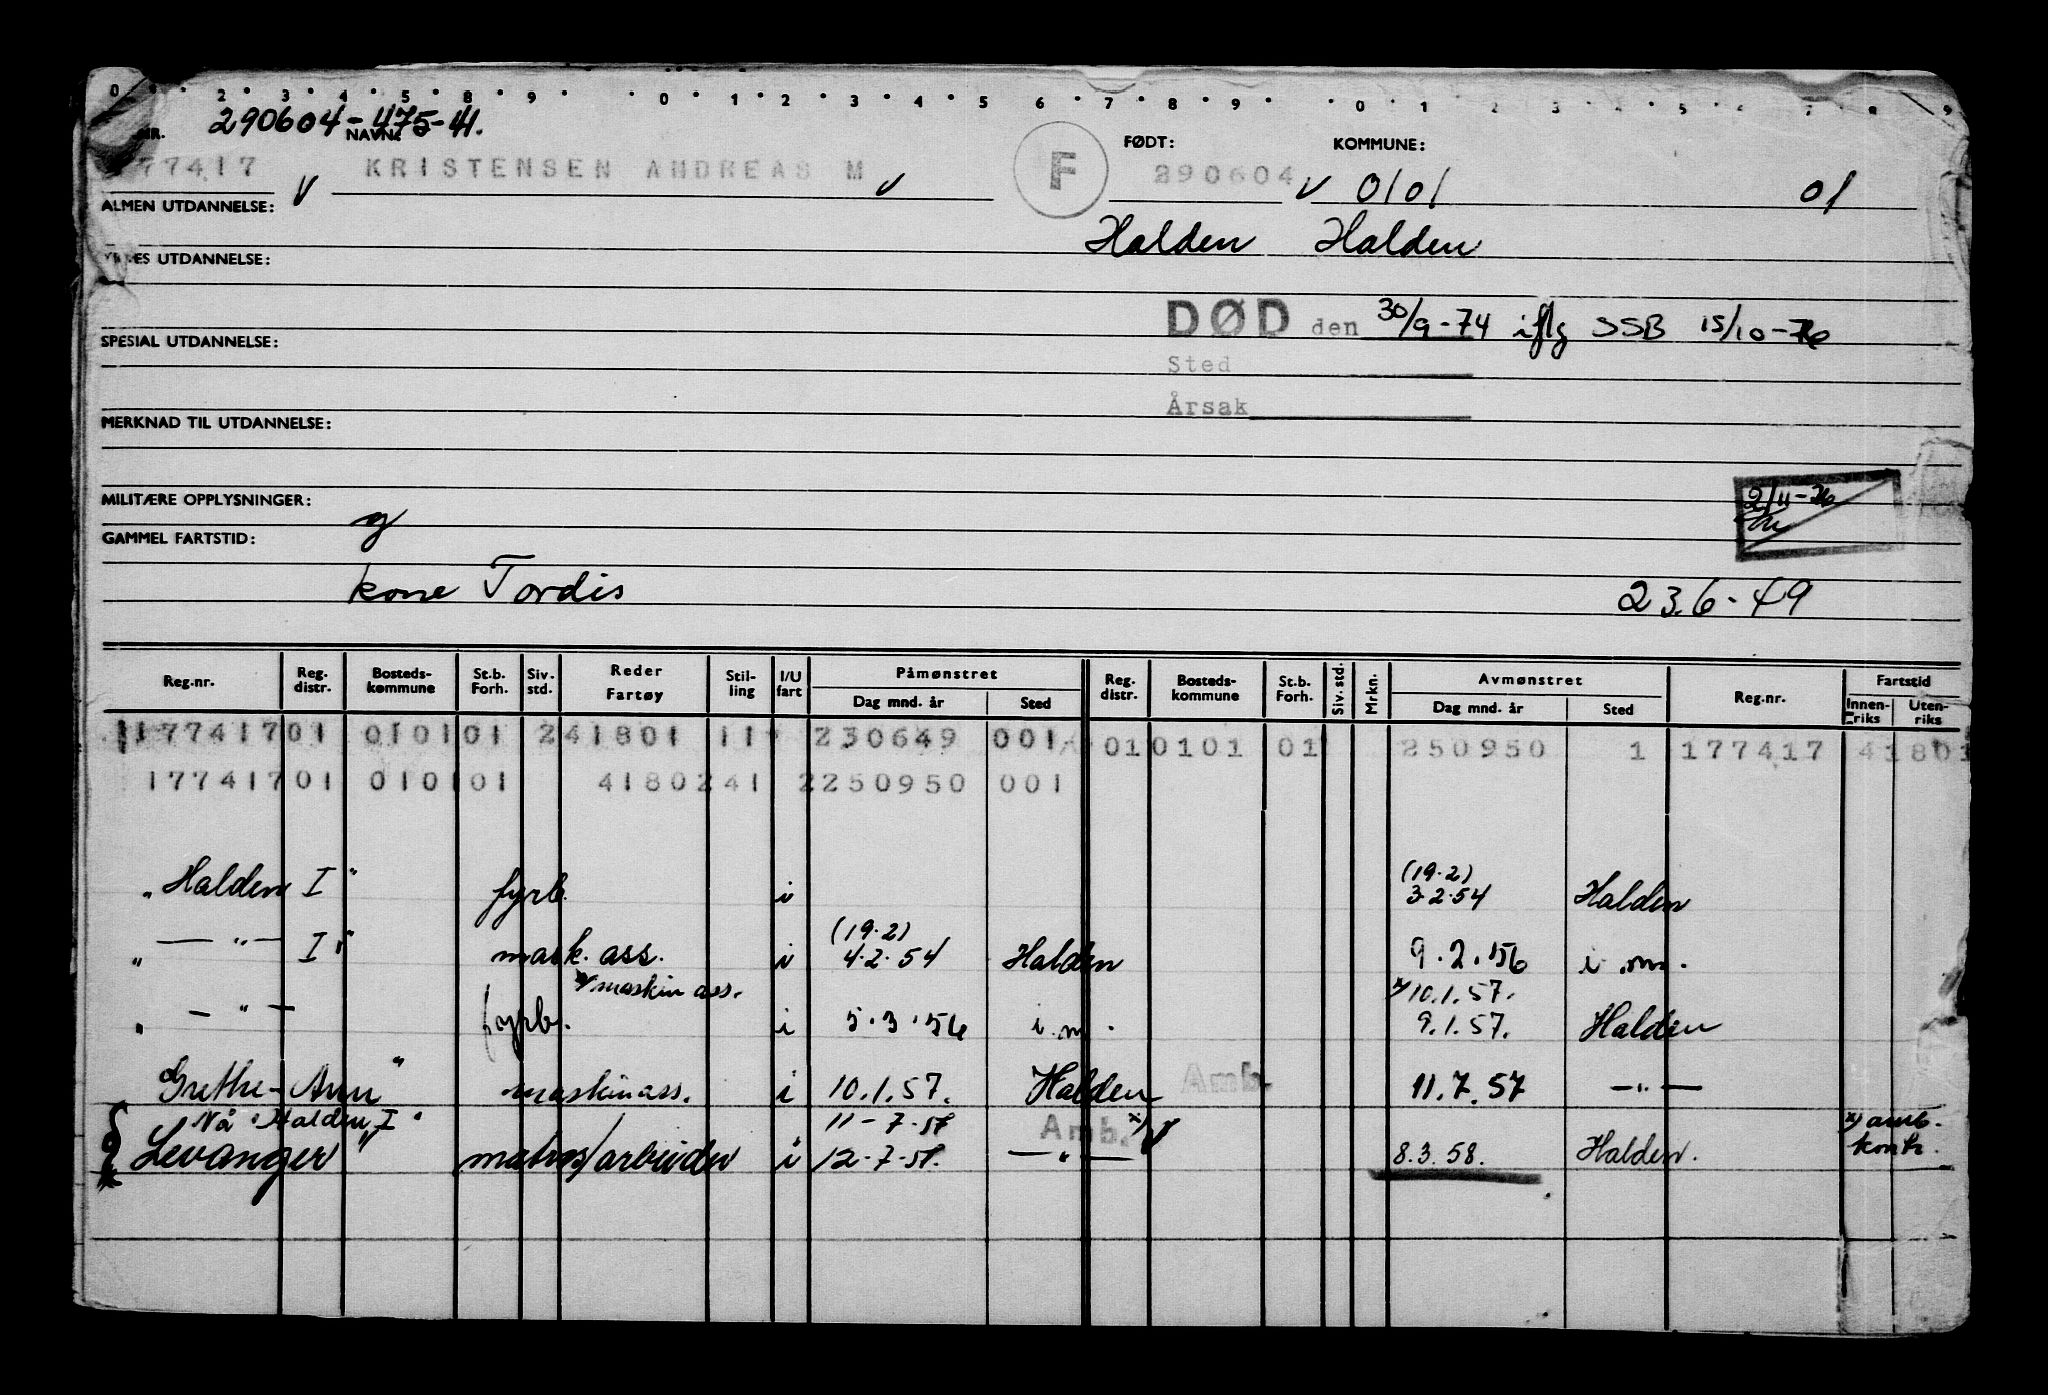 0 2 3 4 5 8 9 0 1 2 3 4 5 6 7 8 9 0 1 2 3 4 5 6 7 8 9
NR. 290604-475-41. NAVN: FØDT: KOMMUNE:
77417 V KRISTENSEN ANDREAS M V F 290604 V 0101 01
ALMEN UTDANNELSE: Halden Halden
YRKES UTDANNELSE:
DØD den 30/9-74 iflg SSB 15/10-76
SPESIAL UTDANNELSE: Sted
Årsak
MERKNAD TIL UTDANNELSE:
MILITÆRE OPPLYSNINGER: g 2/11-76
GAMMEL FARTSTID:
kone Tordis 23.6-49
Reg.nr. Reg. distr. Bosteds-kommune St.b. Forh. Siv. std. Reder Fartøy Stil-ling I/U fart Påmønstret Dag mnd. år Sted Reg. distr. Bosteds-kommune St.b. Forh. Siv. std. Mrkn. Avmønstret Dag mnd. år Sted Reg.nr. Fartstid Innen-riks Uten-riks
17741701 010101 241801 11 230649 001 010101 01 250950 1 177417 41801
17741701 010101 4180241 2250950 001
(19.2)
"Halden I" fyrb. i 3.2.54 Halden
(19.2)
" — " — I" mask. ass. i 4.2.54 Halden 9.2.56 i.m.
x/ maskin ass. x/ 10.1.57.
" — " — fyrb. i 5.3.56 i.m. 9.1.57. Halden
Grethe-Ann" maskinass. i 10.1.57. Halden Amb. 11.7.57 — " —
Nå "Halden I" 11-7-57 Amb. x) V x) amb.
Levanger" matros/arbeider i 12-7-57. — " — 8.3.58. Halden. kontr.